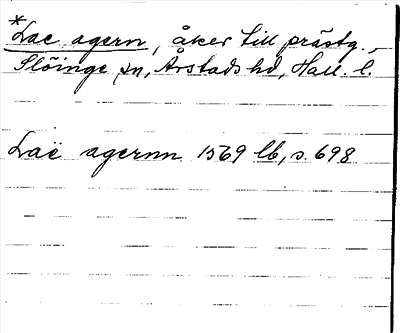 *Lae agern, åker till prästg.,
Slöinge sn, Årstads hd, Hall. l.
Lae agernn 1569 lb, s. 698